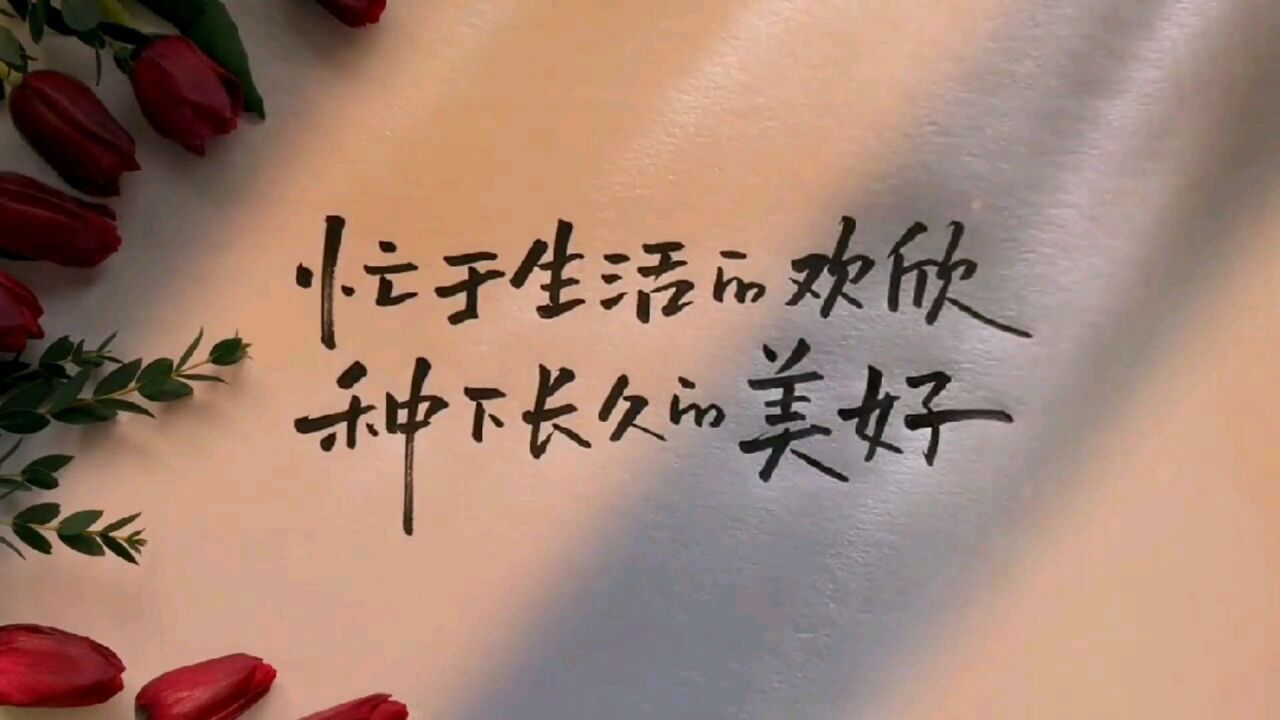 忙于生活的欢欣
种下长久的美好